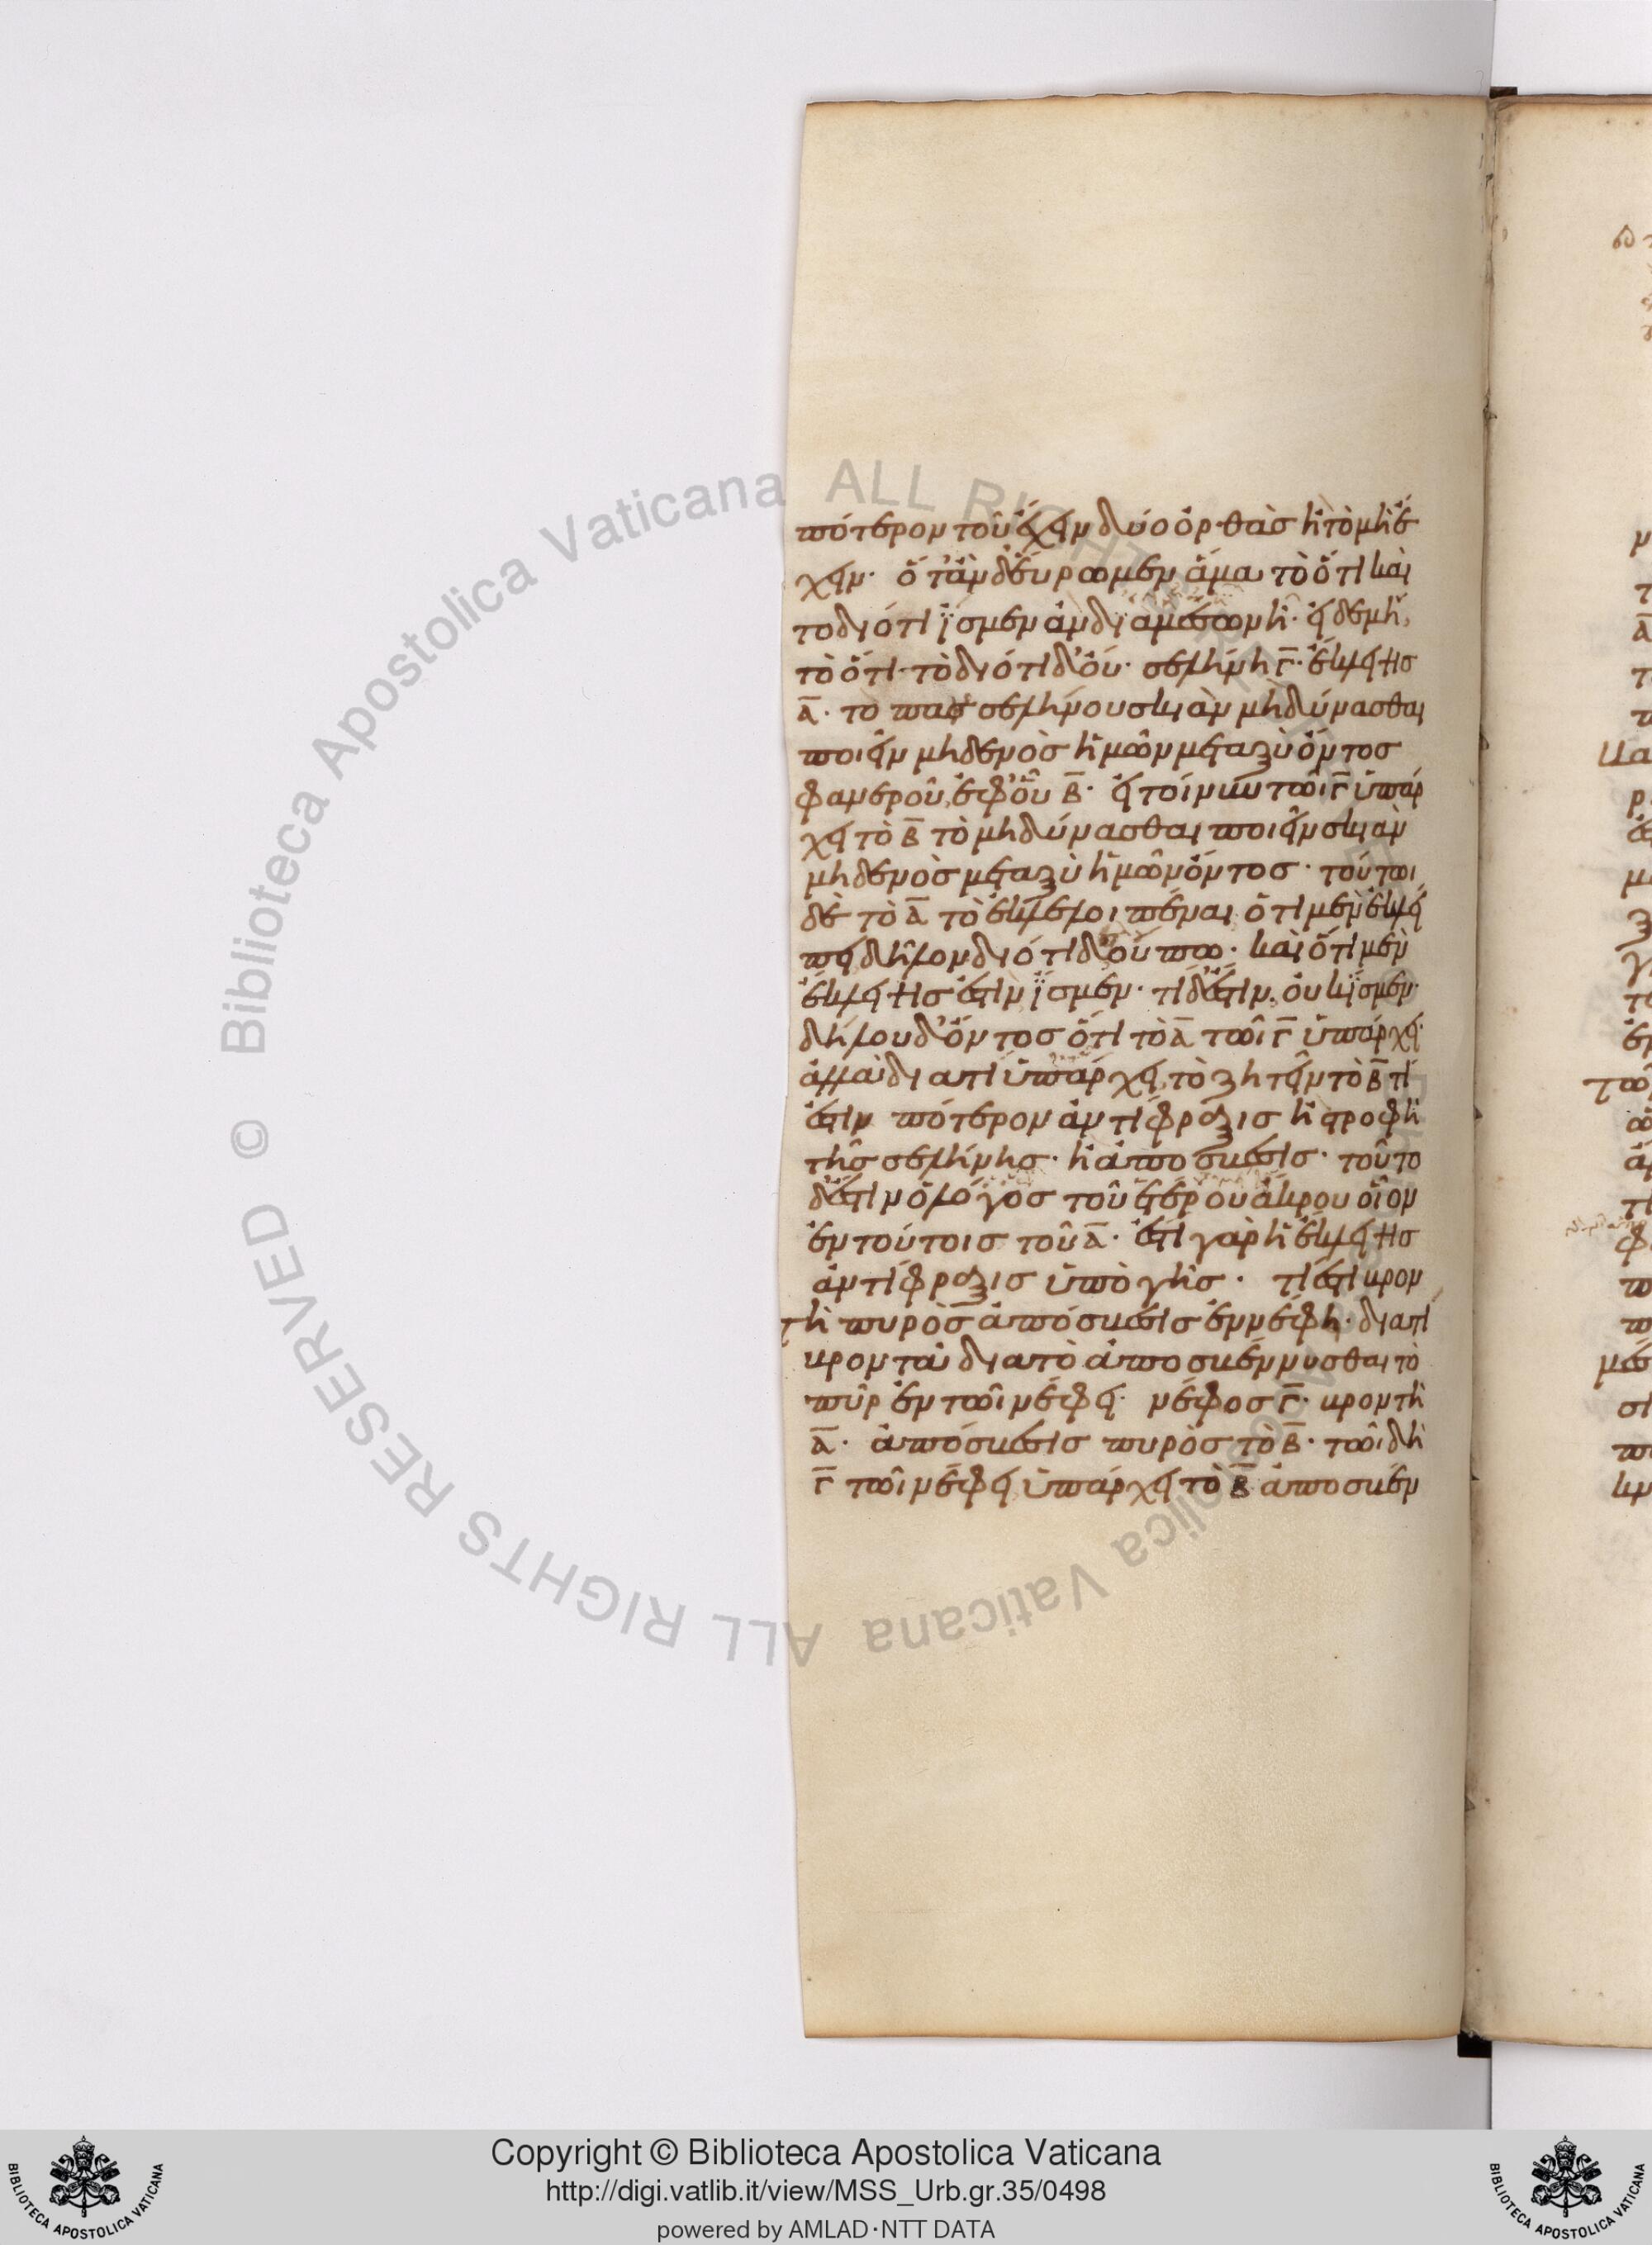 πότερον τοῦ ἔχειν δύο ὀρθὰς ἢ τὸ μὴ ἔ
χειν· ὅταν δ' εὕρωμεν ἅμα τὸ ὅτι καὶ
το διότι ἴσμεν ἂν δι' ἀμέσων ἢ· εἰ δε μὴ,
τὸ ὅτι· τὸ διότι δ' οὔ· σελήνη Γ̅· ἔκλειψις
Α̅· το πασσελήνου σκιὰν μὴ δύνασθαι
ποιεῖν μηδενὸς ἡμῶν μεταξὺ ὄντος
φανεροῦ, ἐφ' οὗ Β̅· εἰ τοίνυν τῶι Γ̅ ὑπάρ
χει τὸ Β̅ τὸ μὴ δύνασθαι ποιεῖν σκιὰν
μηδενὸς μεταξὺ ἡμῶν ὄντος· τούτωι
δὲ τὸ Α̅ τὸ ἐκλελοιπέναι ὅτι μὲν ἐκλεί
πει δῆλον διότι δ' οὔπω· καὶ ὅτι μὲν
ἔκλειψις ἐστὶν ἴσμεν· τί δ' ἐστὶν, οὐκ ἴσμεν·
δήλου δ' ὄντος ὅτι τὸ Α̅ τῶι Γ̅ ὑπάρχει·
ἀλλὰ διατί ὑπάρχει, τὸ ζητεῖν τὸ Β̅ τί
ἐστιν πότερον ἀντίφραξις ἢ στροφὴ
τῆς σελήνης· ἢ ἀπόσβεσις· τοῦτο
δ' ἐστὶν ὁ λόγος τοῦ ἑτέρου ἄκρου οἷον
ἐν τούτοις τοῦ Α̅· ἔστι γὰρ ἡ ἔκλειψις
ἀντίφραξις ὑπὸ γῆς· τί ἐστι βρον
τὴ πυρὸς ἀπόσβεσις ἐν νέφει· διατί
βροντᾶι διατὸ ἀποσβέννυσθαι τὸ
πῦρ ἐν τῶι νέφει· νέφος Γ̅· βροντὴ
Α̅· ἀπόσβεσις πυρὸς τὸ Β̅· τῶι δὴ
Γ̅ τῶι νέφει ὑπάρχει τὸ Β̅ ἀποσβέν
Copyright © Biblioteca Apostolica Vaticana
http://digi.vatlib.it/view/MSS_Urb.gr.35/0498
powered by AMLAD·NTT DATA